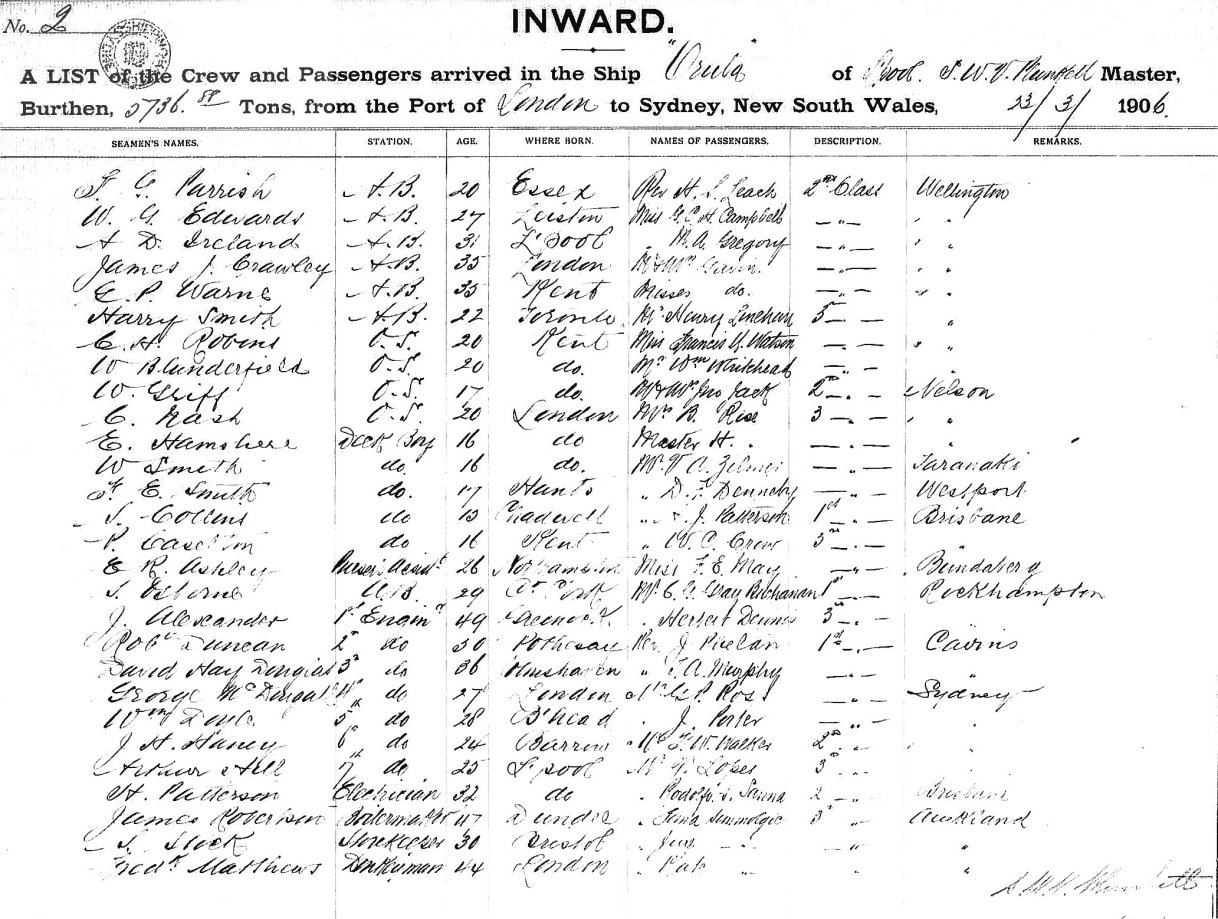 No. 2
INWARD.
A LIST of the Crew and Passengers arrived in the Ship "Oruba" of L'pool. Master,
Burthen, 5736. Tons, from the Port of London to Sydney, New South Wales, 23/3/ 1906.
SEAMEN'S NAMES. STATION. AGE. WHERE BORN. NAMES OF PASSENGERS. DESCRIPTION. REMARKS.
Parrish A.B. 20 Essex Rev H. S. Leach 2nd Class Wellington
W. G. Edwards A.B. 27 Leiston Miss G. C. H. Campbell — " — " "
A D. Ireland A.B. 31 L'pool " M. A. Gregory — " — " "
James J. Crawley A.B. 35 London — " — " "
E. P. Warne A.B. 35 Kent Misses do. — " — " "
Harry Smith A.B. 22 Toronto Mr Henry Linehan 3 — " — "
C. H. Robins O.S. 20 Kent Miss Francis Watson — " — " "
W O.S. 20 do. Mr Wm Whitehead — " — "
W. Griff O.S. 17 do. Mr & Mrs Jno Jack 2nd — " — Nelson
C. Nash O.S. 20 London Mrs B. Rise 3 — " — " "
E. Hamshere Deck Boy 16 do Master H. " — " — "
W Smith do. 16 do. Mr V. A. — " — Taranaki
E. Smith do. 17 Hants " D. Dennehy — " — Westport
Collins do 15 Chadwell " J. Patterson 1st — " — Brisbane
P. Caselton do 16 Kent " W. C. Crow 3rd — " — "
E R. Ashley Purser's Assist. 26 Northampton Miss F. E. May — " — Bundaberg
Osborne A.B. 29 Co. Cork Mr C. G. Gray Buchanan 1st " Rockhampton
J. Alexander 1st Enginr 49 Greenock " Herbert Dennis 3rd — " — "
Robt Duncan 2nd do 30 Rothesay Rev. J Phelan 1st — " — Cairns
David Hay Douglas 3rd do 36 " T. A. Murphy — " — "
George McDougall 4th do 27 London Mr G. P. Ross — " — Sydney
Wm Doyle 5th do 28 B'head " J. Porter — " — "
J H. Haney 6th do 24 Barrow " Mr F. W. Walker 2nd " " "
Arthur Hill 7th do 25 L'pool Mr V. Lopes 3rd " "
H. Patterson Electrician 32 do " Rodolfo 2 — " — Brisbane
James Robertson Boilermaker 47 Dundee " 3rd " Auckland
S. Stock Storekeeper 30 Bristol " — " "
Fredk Matthews Donkeyman 44 London " " "